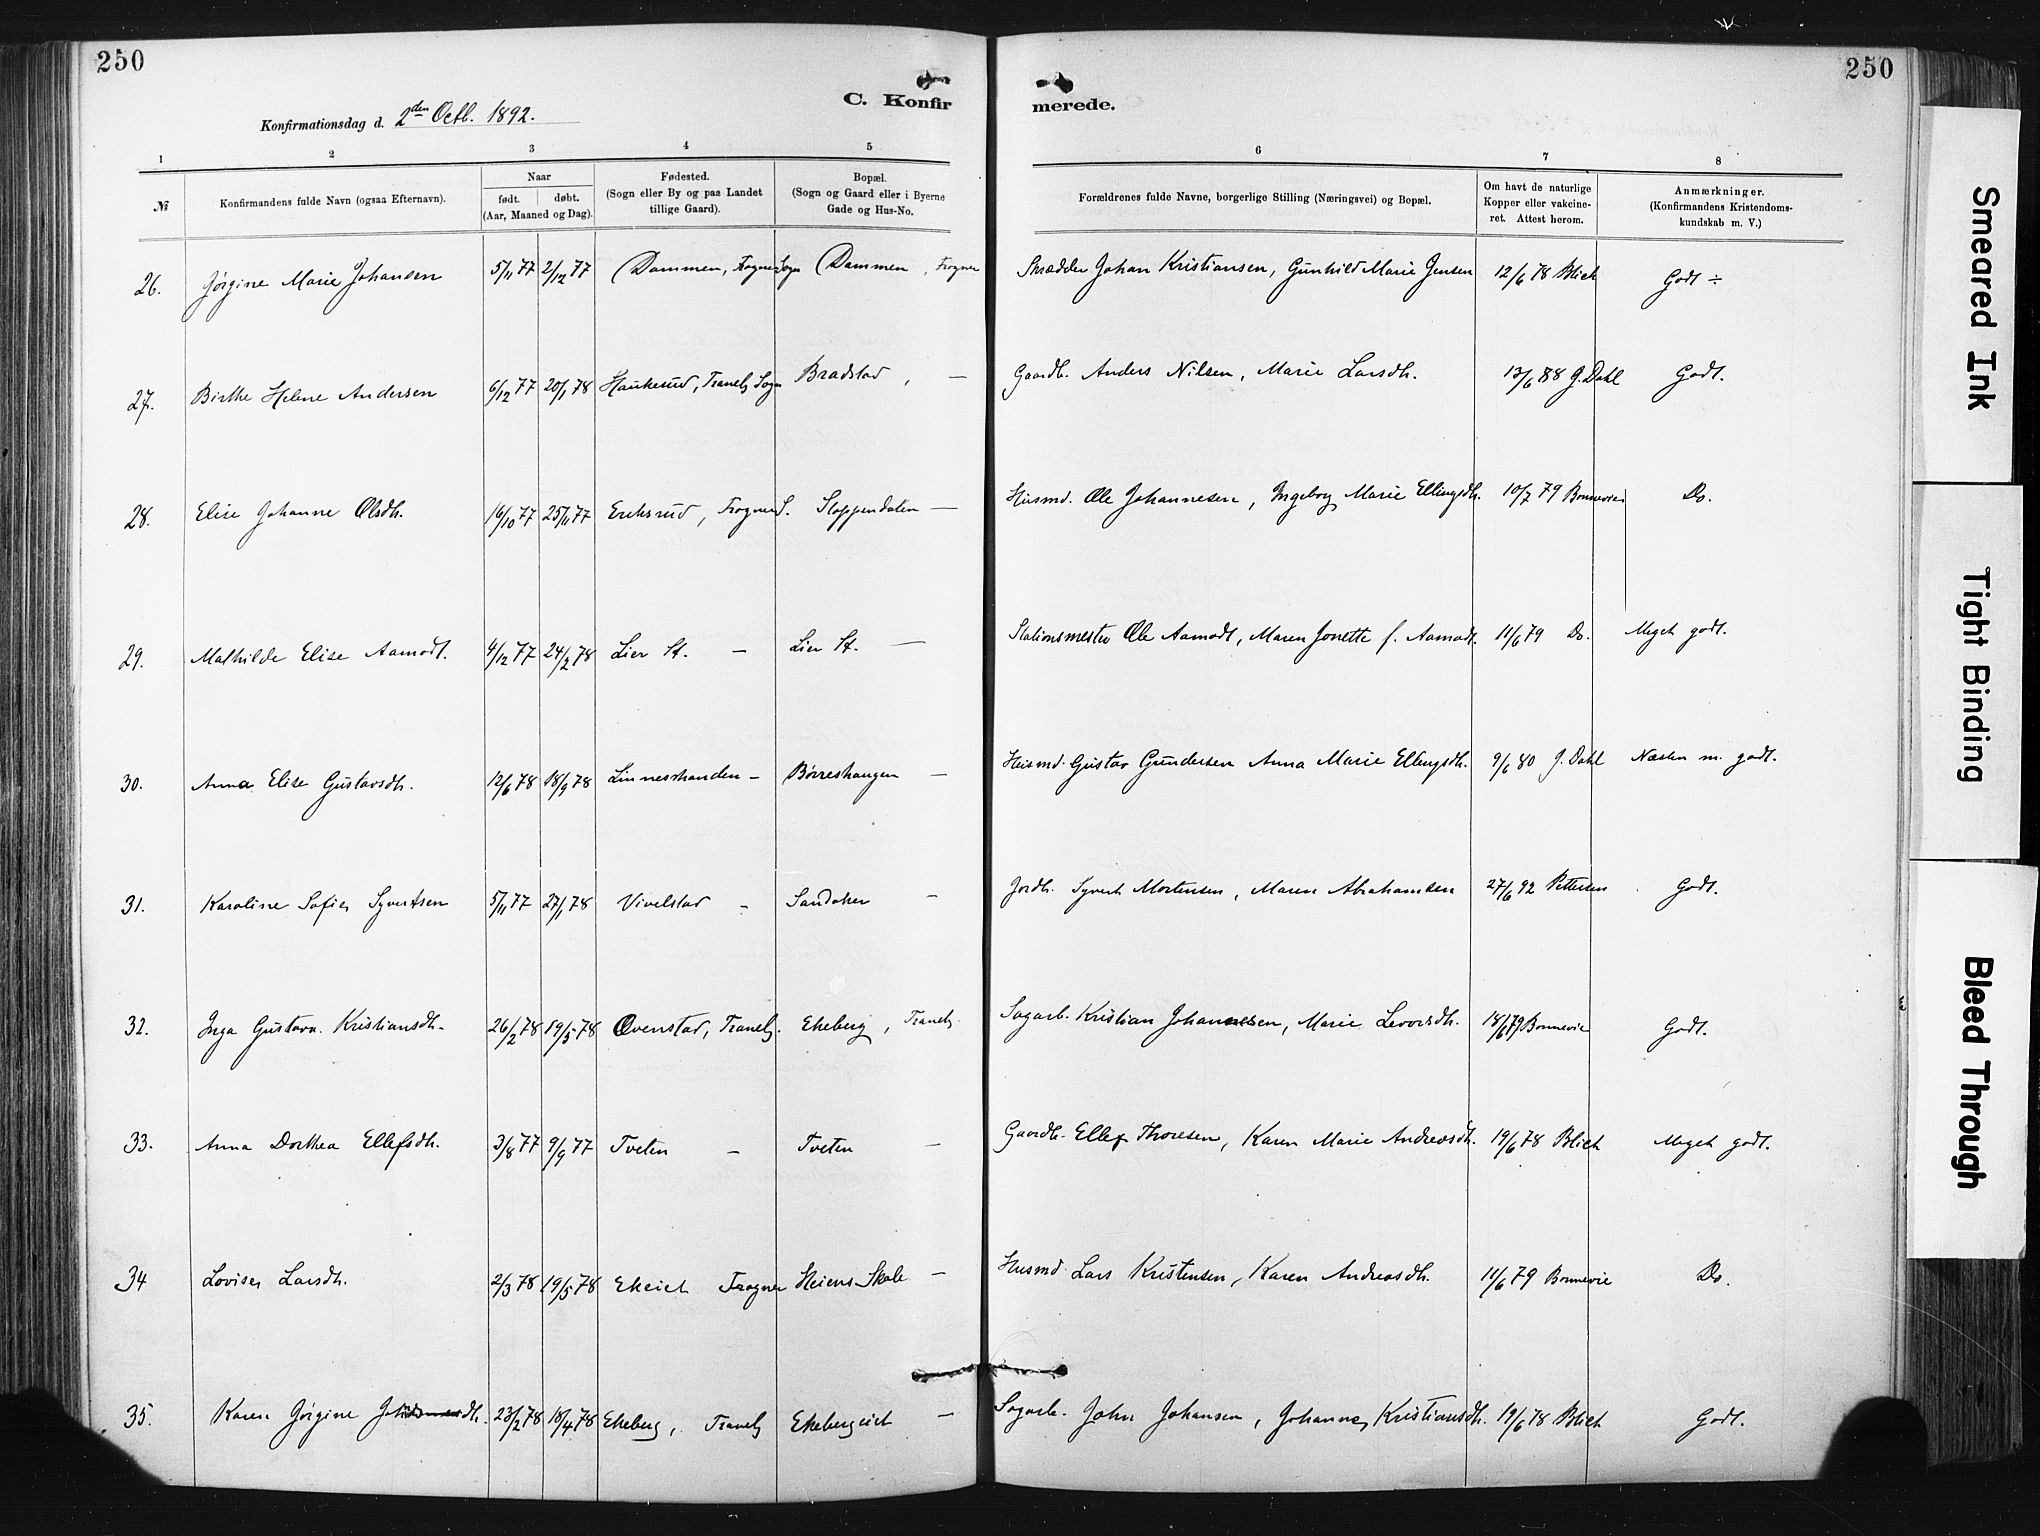 250
250
C. Konfir
merede.
Konfirmationsdag d. 2den Octb. 1892.
1 2 3 4 5 6 7 8
№ Konfirmandens fulde Navn (ogsaa Efternavn). Naar født. døbt. (Aar, Maaned og Dag). Fødested. (Sogn eller By og paa Landet tillige Gaard). Bopæl. (Sogn og Gaard eller i Byerne Gade og Hus-No. Forældrenes fulde Navne, borgerlige Stilling (Næringsvei) og Bopæl. Om havt de naturlige Kopper eller vakcineret. Attest herom. Anmærkninger. (Konfirmandens Kristendomskundskab m. V.)
26. Jørgine Marie Johansen 5/11 77 2/12 77 Dammen, Frogner Sogn Dammen, Frogner Skrædder Johan Kristiansen, Gunhild Marie Jensen 12/6 78 Blich Godt ÷
27. Birthe Helene Andersen 6/12 77 20/1 78 Haukerud, Tranby Sogn Bradstad, — Gaardb. Anders Nilsen, Marie Larsdh. 13/6 88 G. Dahl Godt.
28. Elise Johanne Olsdh. 16/10 77 25/11 77 Eriksrud, Frogner S. Stoppendalen — Husmd. Ole Johannesen, Ingeborg Marie Ellingsdh. 10/7 79 Bonnevier Do.
29. Mathilde Elise Aamodt. 4/12 77 24/2 78 Lier St. — Lier St. — Stationsmester Ole Aamodt, Maren Jonette f. Aamodt. 11/6 79 Do. Meget godt.
30. Anna Elise Gustavsdh. 12/6 78 18/9 78 Linnesstranden — Børreshaugen — Husmd. Gustav Gundersen Anna Marie Ellingsdh. 9/6 80 J. Dahl Næsten m. godt.
31. Karoline Sofie Syvertsen 5/11 77 27/1 78 Vivelstad — Sandaker — Jordb. Syvert Mortensen, Maren Abrahamsen 27/6 92 Pettersen Godt.
32. Inga Gustava Kristiansdh. 26/2 78 19/5 78 Ovenstad, Tranby. Ekeberg, Tranby. Sagarb. Kristian Johannesen, Marie Levorsdh. 18/6 79 Bonnevie Godt.
33. Anna Dorthea Ellefsdh. 3/8 77 9/9 77 Tveten — Tveten — Gaardb. Ellef Thoresen, Karen Marie Andreasdh. 19/6 78 Blich Meget godt.
34 Lovise Larsdh. 2/3 78 19/5 78 Ekeich Frogner Heiens Skole — Husmd. Lars Kristensen, Karen Andreasdh. 11/6 79 Bonnevie Do.
35. Karen Jørgine 23/2 78 18/4 78 Ekeberg, Tranby Ekebergeich — Sagarb. John Johansen, Johanne Kristiansdh. 19/6 78 Blich Godt.
Smeared Ink
Tight Binding
Bleed Through